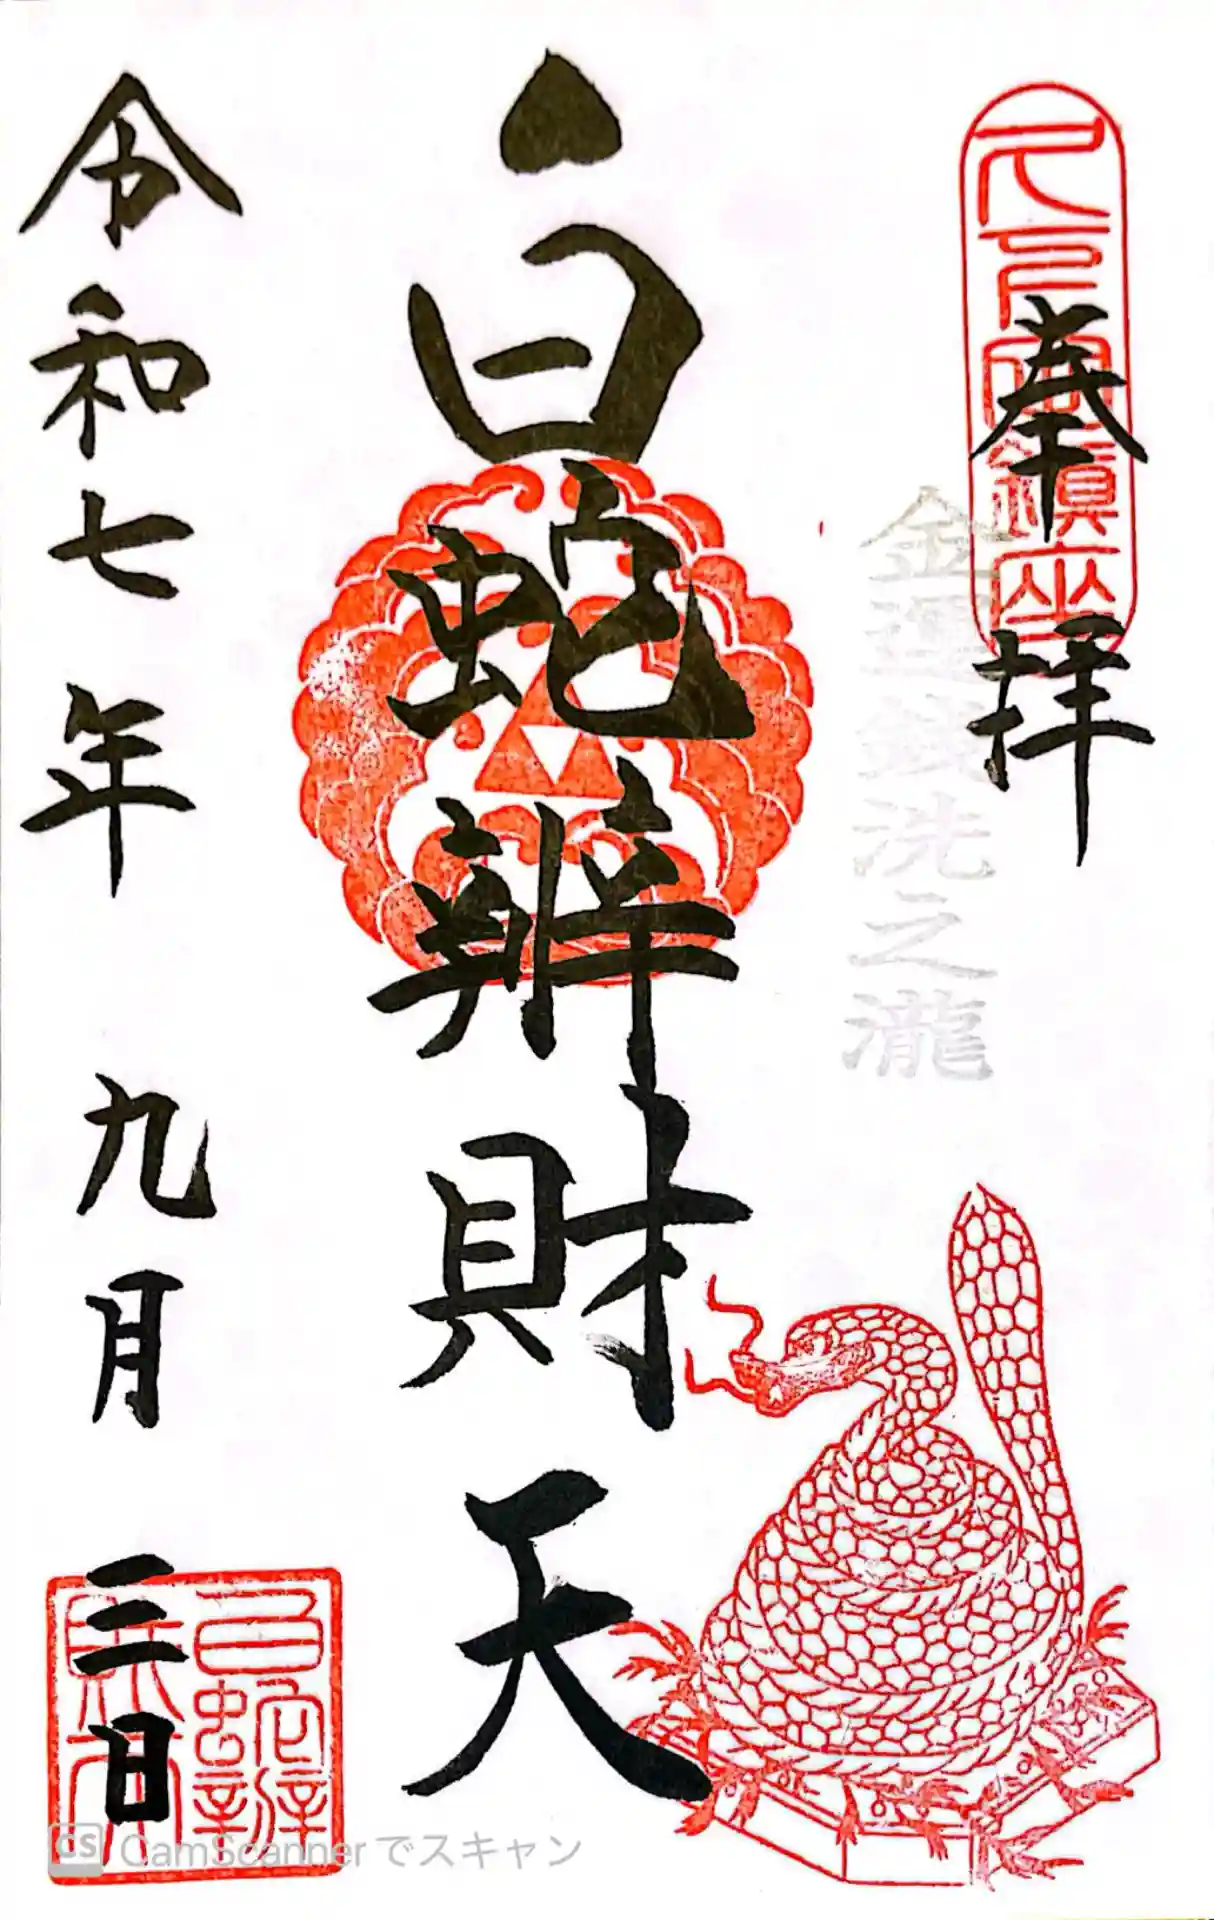 奉拝
鎮座
金運銭洗之瀧
白蛇辨財天
令和七年 九月 三日
白蛇辨財天
CS CamScannerでスキャン